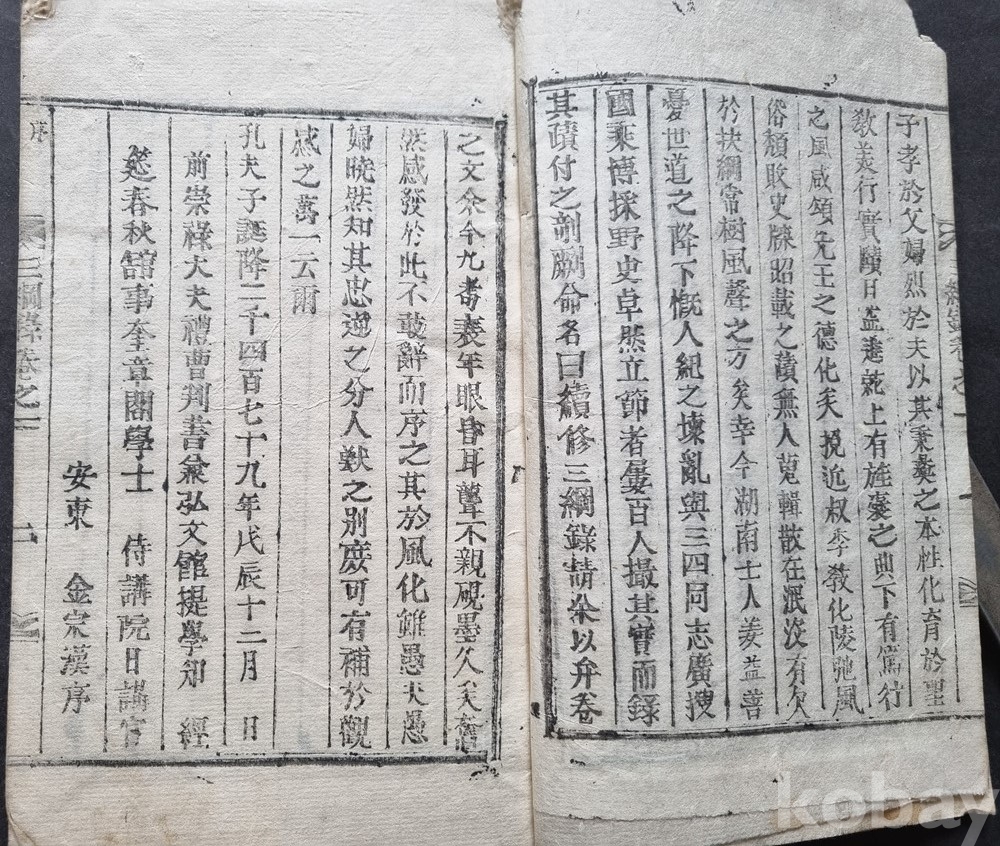 子孝於父婦烈於夫以其秉彝之本性化育於聖
敎美行實蹟日益進就上有旌褒之典下有篤行
之風咸頌先王之德化矣挽近叔季敎化陵弛風
俗頹敗史牒昭載之蹟無人蒐輯散在泯沒有欠
於扶綱常樹風聲之方矣幸今湖南士人姜益善
憂世道之降下慨人紀之壞亂與三四同志廣搜
國乘博採野史卓然立節者屢百人撮其實而錄
其蹟付之剞劂命名曰續修三綱錄請余以弁卷
之文余今九耇衰年眼昏耳聾不親硯墨久矣
然感發於此不敢辭而序之其於風化雖愚夫愚
婦曉然知其忠逆之分人獸之別庶可有補於觀
感之萬一云爾
孔夫子誕降二千四百七十九年戊辰十二月 日
前崇祿大夫禮曹判書兼弘文館提學知 經
筵春秋館事奎章閣學士 侍講院日講官
安東 金宗漢序
序
三綱錄卷之一
二
kobay